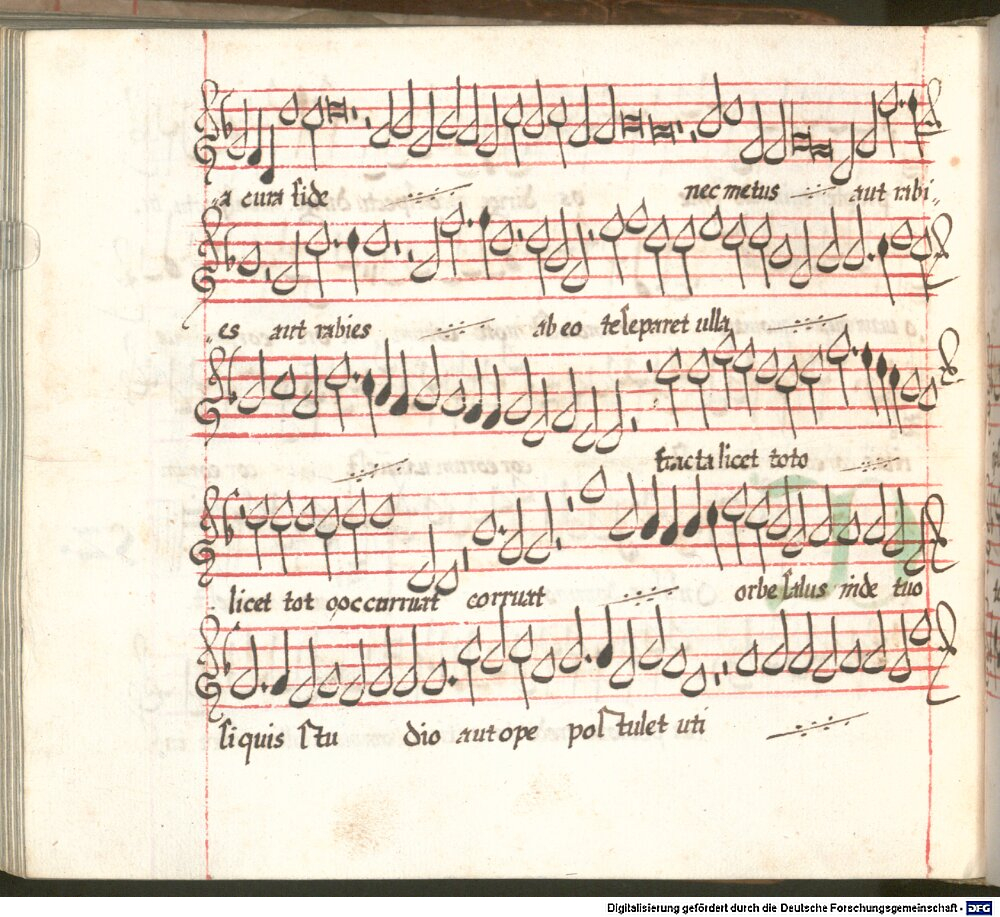 a cura fide nec metus aut rabi„
„es aut rabies ab eo te separet ulla
fracta licet toto
licet tot occurruat corruat orbe salus inde tuo
si quis stu dio aut ope postulet uti
Digitalisierung gefördert durch die Deutsche Forschungsgemeinschaft - DFG